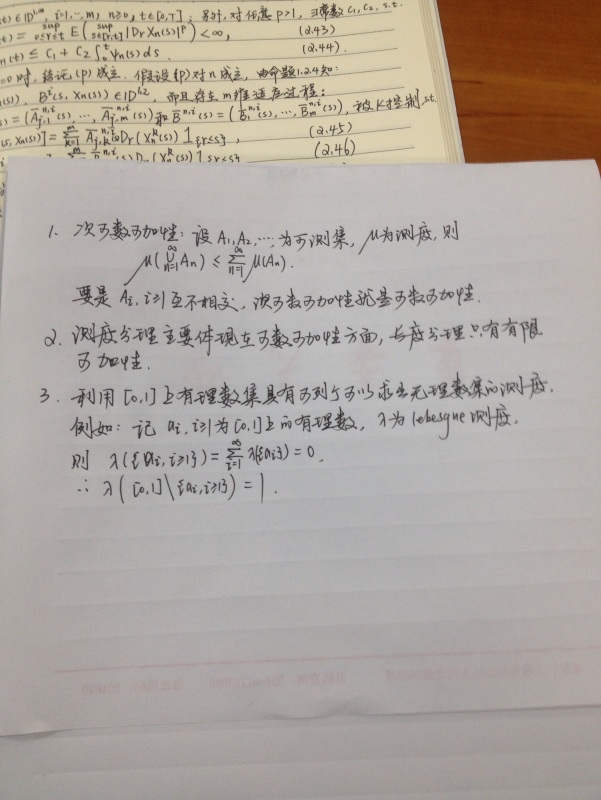 (t)∈D^{1,∞}, i=1,…,m, n≥0, t∈[0,T]; 另外, 对任意 p>1, ∃常数 C₁, C₂, s.t.
(t) = sup_{0≤r≤t} E( sup_{s∈[r,t]} |D_r X_n(s)|^p ) < ∞, (2.43)
(t) ≤ C₁ + C₂ ∫₀^t ψ_n(s) ds. (2.44)
=0时, 结论(P)成立. 假设(P)对n成立, 由命题1.2.4知:
(s)), B^i(s, X_n(s)) ∈ D^{1,2}, 而且存在m维适应过程:
(s) = (Ā_{j,1}^{n,i}(s), …, Ā_{j,m}^{n,i}(s)) 和 B̄^{n,i}(s) = (B̄_1^{n,i}(s), …, B̄_m^{n,i}(s)), 被K控制, s.t.
(s, X_n(s))] = Σ_{k=1}^m Ā_{j,k}^{n,i}(s) D_r(X_n^k(s)) 1_{{r≤s}}, (2.45)
(2.46)
1. 次可数可加性: 设 A₁,A₂,… 为可测集, μ为测度, 则
μ(∪_{n=1}^∞ A_n) ≤ Σ_{n=1}^∞ μ(A_n).
要是 A_i, i≥1 互不相交, 次可数可加性就是可数可加性.
2. 测度合理主要体现在可数可加性方面, 长度合理只有有限
可加性.
3. 利用 [0,1] 上有理数集具有可列个可以求出无理数集的测度.
例如: 记 a_i, i≥1 为 [0,1] 上的有理数, λ为 lebesgue 测度.
则 λ({a_i, i≥1}) = Σ_{i=1}^∞ λ{a_i} = 0.
∴ λ([0,1] \ {a_i, i≥1}) = 1.